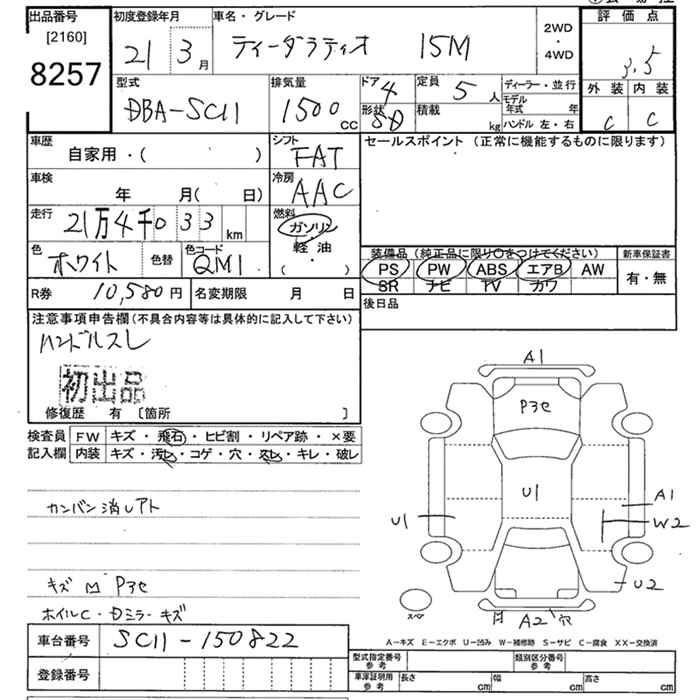 出品番号
[2160]
8257
初度登録年月
21 3月
車名・グレード
ティーダラティオ 15M
2WD
・
4WD
評価点
3.5
外装 内装
C C
型式
DBA-SC11
排気量
1500 cc
ドア 4
形状 SD
定員 5人
積載 kg
ディーラー・並行
モデル年式 年
ハンドル 左・右
車歴
自家用・( )
シフト
FAT
車検
年 月( 日)
冷房
AAC
走行
21万4千033 km
燃料
ガソリン
・
軽油
・
( )
色
ホワイト
色替
色コード
QM1
R券 10,580円
名変期限 月 日
セールスポイント (正常に機能するものに限ります)
装備品 (純正品に限り○をつけてください)
PS PW ABS エアB AW
SR ナビ TV カワ
新車保証書
有・無
後日品
注意事項申告欄(不具合内容等は具体的に記入して下さい)
ハンドルスレ
初出品
修復歴 有 〔箇所 〕
検査員
記入欄
FW キズ・飛石・ヒビ割・リペア跡・×要
内装 キズ・汚レ・コゲ・穴・スレ・キレ・破レ
カンバン消しアト
キズ M Pマe
ホイルC・Dミラーキズ
A1
U1
U1
A1
W2
U2
A2 穴
スペア
A-キズ E-エクボ U-凹み W-補修跡 S-サビ C-腐食 XX-交換済
車台番号 SC11-150822
登録番号
型式指定番号
参考
類別区分番号
参考
車庫証明用
参考
長さ cm
幅 cm
高さ cm